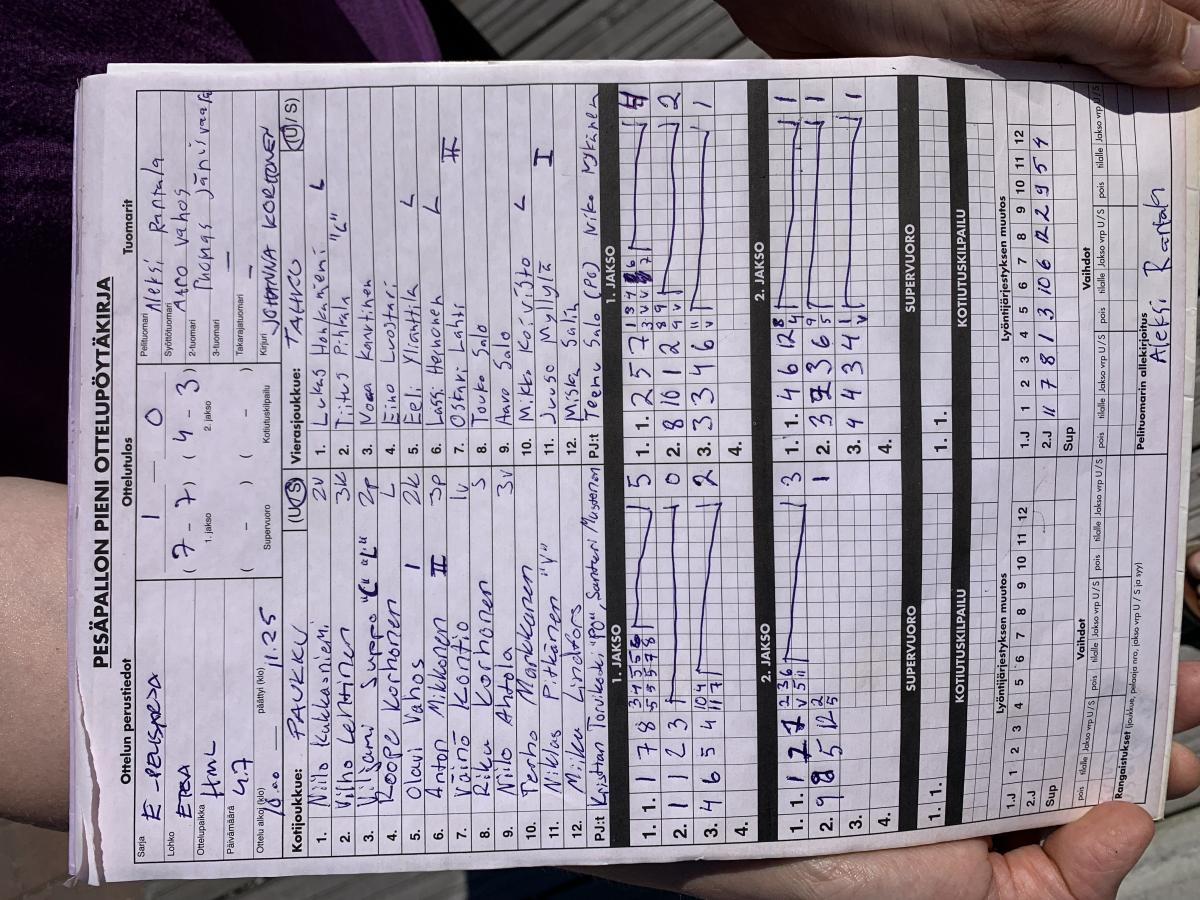 PESÄPALLON PIENI OTTELUPÖYTÄKIRJA
Ottelun perustiedot Ottelutulos Tuomarit
Sarja E-POJISARJA
Lohko ETELÄ
Ottelupaikka HML
Päivämäärä 4.7
Ottelu alkoi (klo) 10.00 päättyi (klo) 11.25
1 — 0
(7 - 7) (4 - 3)
1. jakso 2. jakso
( - ) ( - )
Supervuoro Kotiutuskilpailu
Pelituomari Aleksi Rantala
Syöttötuomari Atro Vahos
2-tuomari Tuomas Jänisvaara
3-tuomari —
Takarajatuomari —
Kirjuri JOHANNA KORTTONEN
Kotijoukkue: PAUKKU (U/S)
1. Niilo Kukkasniemi 2v
2. Vilho Lehtinen 3k
3. Viljami Suppo "C" "L" 2p
4. Roope Korhonen L
5. Olavi Vahos I 2k
6. Anton Mikkonen II 3p
7. Väinö Kontio 1v
8. Riku Korhonen S
9. Niilo Ahtola 3v
10. Terho Markkanen
11. Niklas Pitkänen "V"
12. Miiku Lindfors
PJ:t Kristian Torvikoski "PO", Santeri Mustonen
Vierasjoukkue: TAHKO (U/S)
1. Lukas Honkaniemi L
2. Tiitus Pihlala "C"
3. Noa Kanartinen
4. Eino Luostari
5. Eeli Yliantti L
6. Lassi Hernonen L
7. Oskari Lahti II
8. Touko Salo
9. Aaro Salo
10. Mikko Koivisto L
11. Juuso Myllylä I
12. Miska Salin
PJ:t Teemu Salo (PO) Niko Mykänen
1. JAKSO 1. JAKSO
1. 1. 1 7 8 5
2. 1 1 2 3 0
3. 4 6 5 4 2
4.
1. 1. 2 5 7 4
2. 8 10 1 2 2
3. 3 3 4 6 1
4.
2. JAKSO 2. JAKSO
1. 1. 1 7 7 3
2. 9 8 5 12 1
3.
4.
1. 1. 4 6 12 1
2. 3 7 3 6 1
3. 4 4 3 4 1
4.
SUPERVUORO SUPERVUORO
1. 1. 1. 1.
KOTIUTUSKILPAILU KOTIUTUSKILPAILU
Lyöntijärjestyksen muutos Lyöntijärjestyksen muutos
1.J 1 2 3 4 5 6 7 8 9 10 11 12
2.J
Sup
1.J 1 2 3 4 5 6 7 8 9 10 11 12
2.J 11 7 8 1 3 10 6 12 2 9 5 4
Sup
Vaihdot Vaihdot
pois tilalle Jakso vrp U/S pois tilalle Jakso vrp U/S pois tilalle Jakso vrp U/S
pois tilalle Jakso vrp U/S pois tilalle Jakso vrp U/S pois tilalle Jakso vrp U/S
Rangaistukset (joukkue, pelaaja nro, jakso vrp U / S ja syy)
Pelituomarin allekirjoitus
Aleksi Rantala